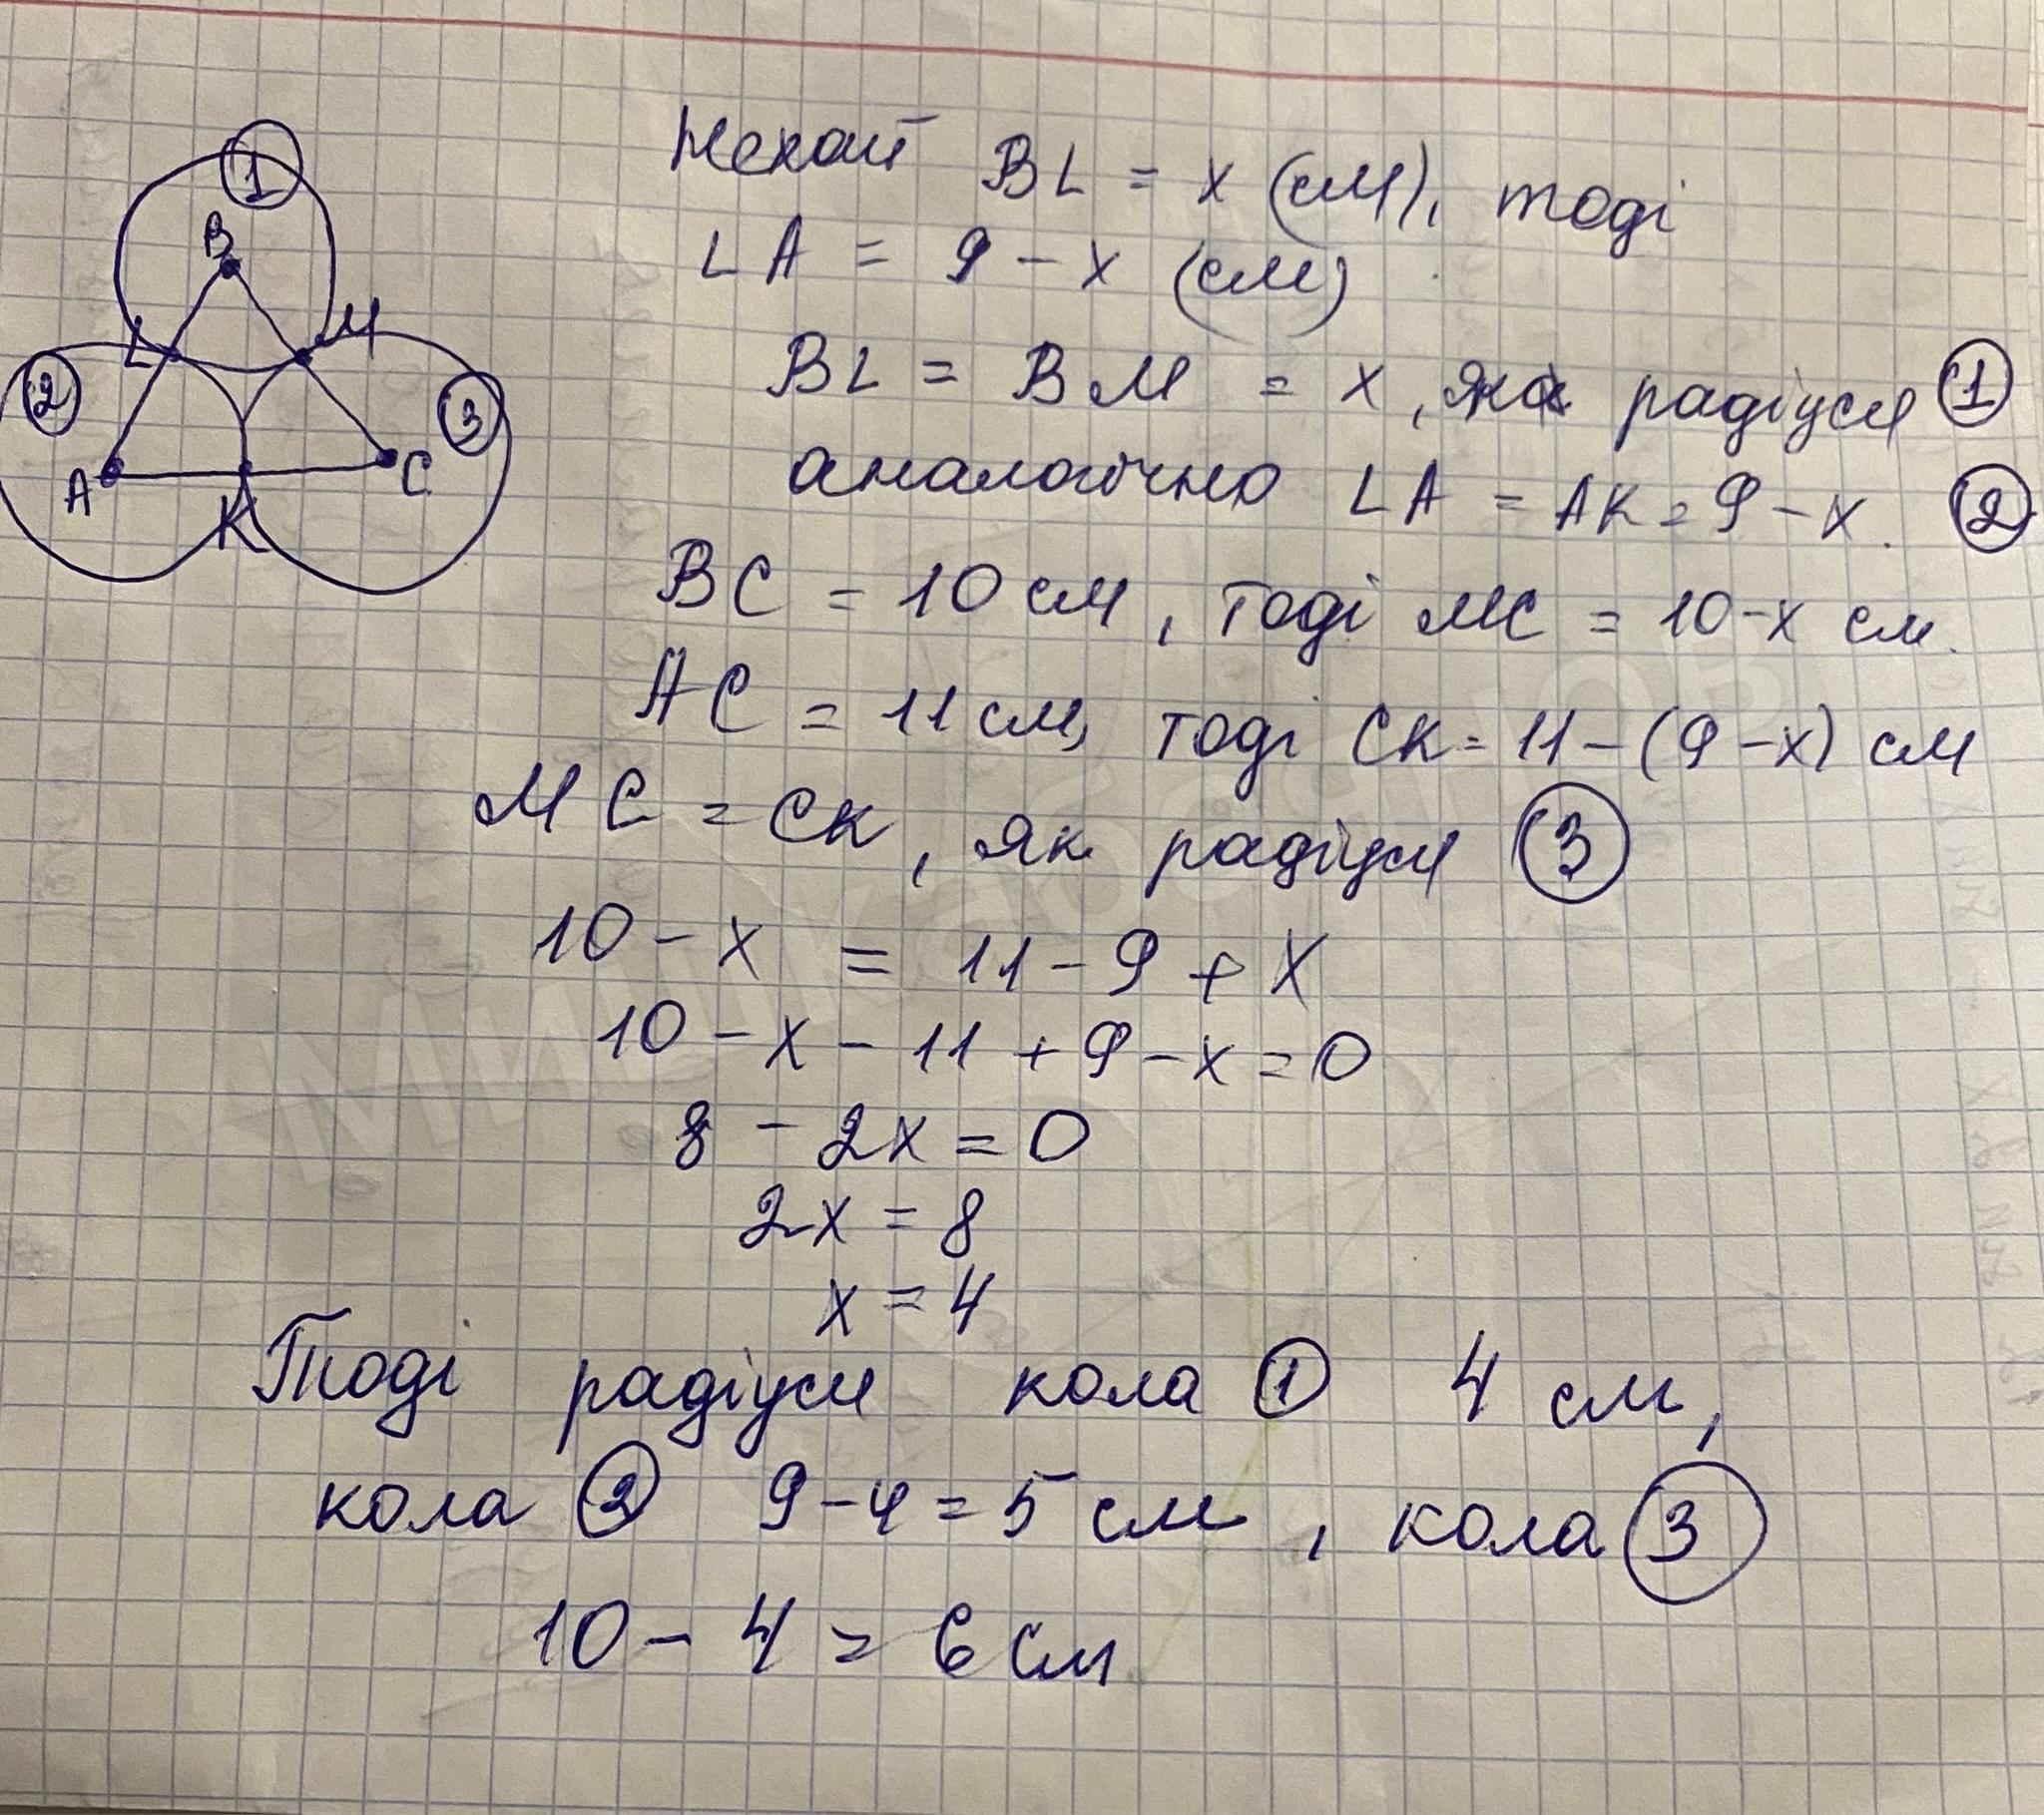 1
B
L
M
2
3
A
K
C
Нехай BL = x (см), тоді
LA = 9 - x (см)
BL = BM = x, як радіуси 1
аналогічно LA = AK = 9 - x. 2
BC = 10 см, тоді MC = 10-x см.
AC = 11 см, тоді CK = 11 - (9 - x) см
MC = CK, як радіуси 3
10 - x = 11 - 9 + x
10 - x - 11 + 9 - x = 0
8 - 2x = 0
2x = 8
x = 4
Тоді радіуси кола 1 4 см,
кола 2 9 - 4 = 5 см, кола 3
10 - 4 = 6 см